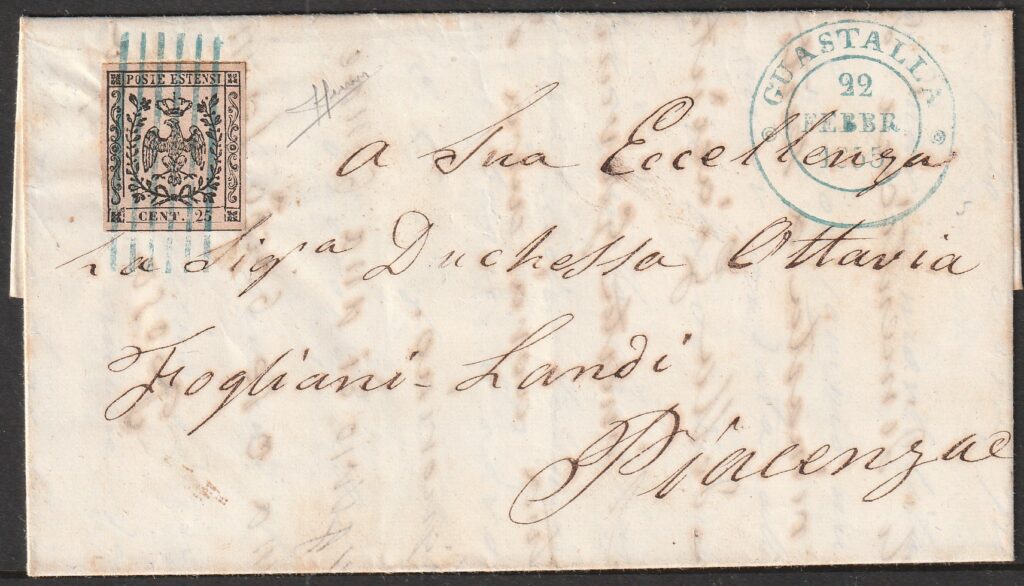 POSTE ESTENSI
CENT. 25
GUASTALLA
22
FEBBR
A Sua Eccellenza
La Sig.ra Duchessa Ottavia
Fogliani-Landi
Piacenza